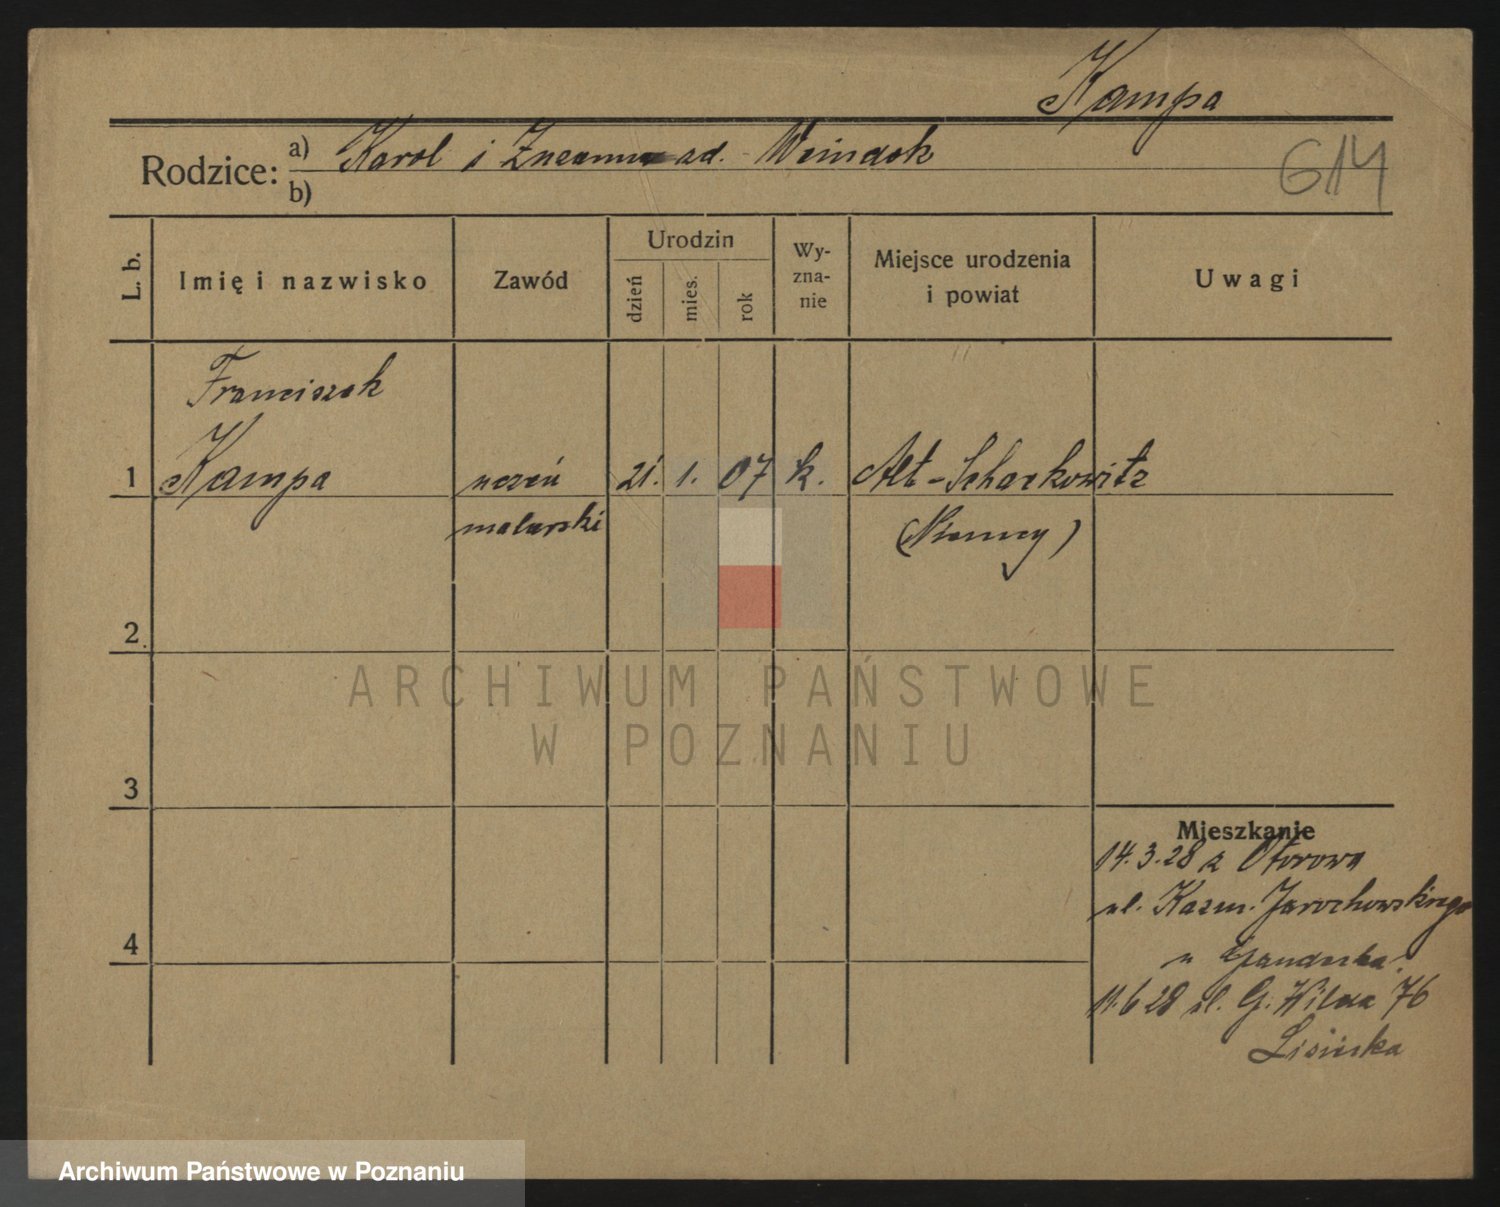 Kampa
Rodzice: a) Karol i Zuzanna zd. Weindok
b)
614
L. b.
Imię i nazwisko
Zawód
Urodzin
dzień
mies.
rok
Wy-
zna-
nie
Miejsce urodzenia
i powiat
Uwagi
Franciszek
1 Kampa uczeń 21. 1. 07 k. Alt-Scharkowitz
malarski (Niemcy)
2
3
4
Mieszkanie
14.3.28 z Otorowa
ul. Kazm. Jarochowskiego
u
11.6 28 ul. G. Wilda 76
Lisiecka
ARCHIWUM PAŃSTWOWE
W POZNANIU
Archiwum Państwowe w Poznaniu